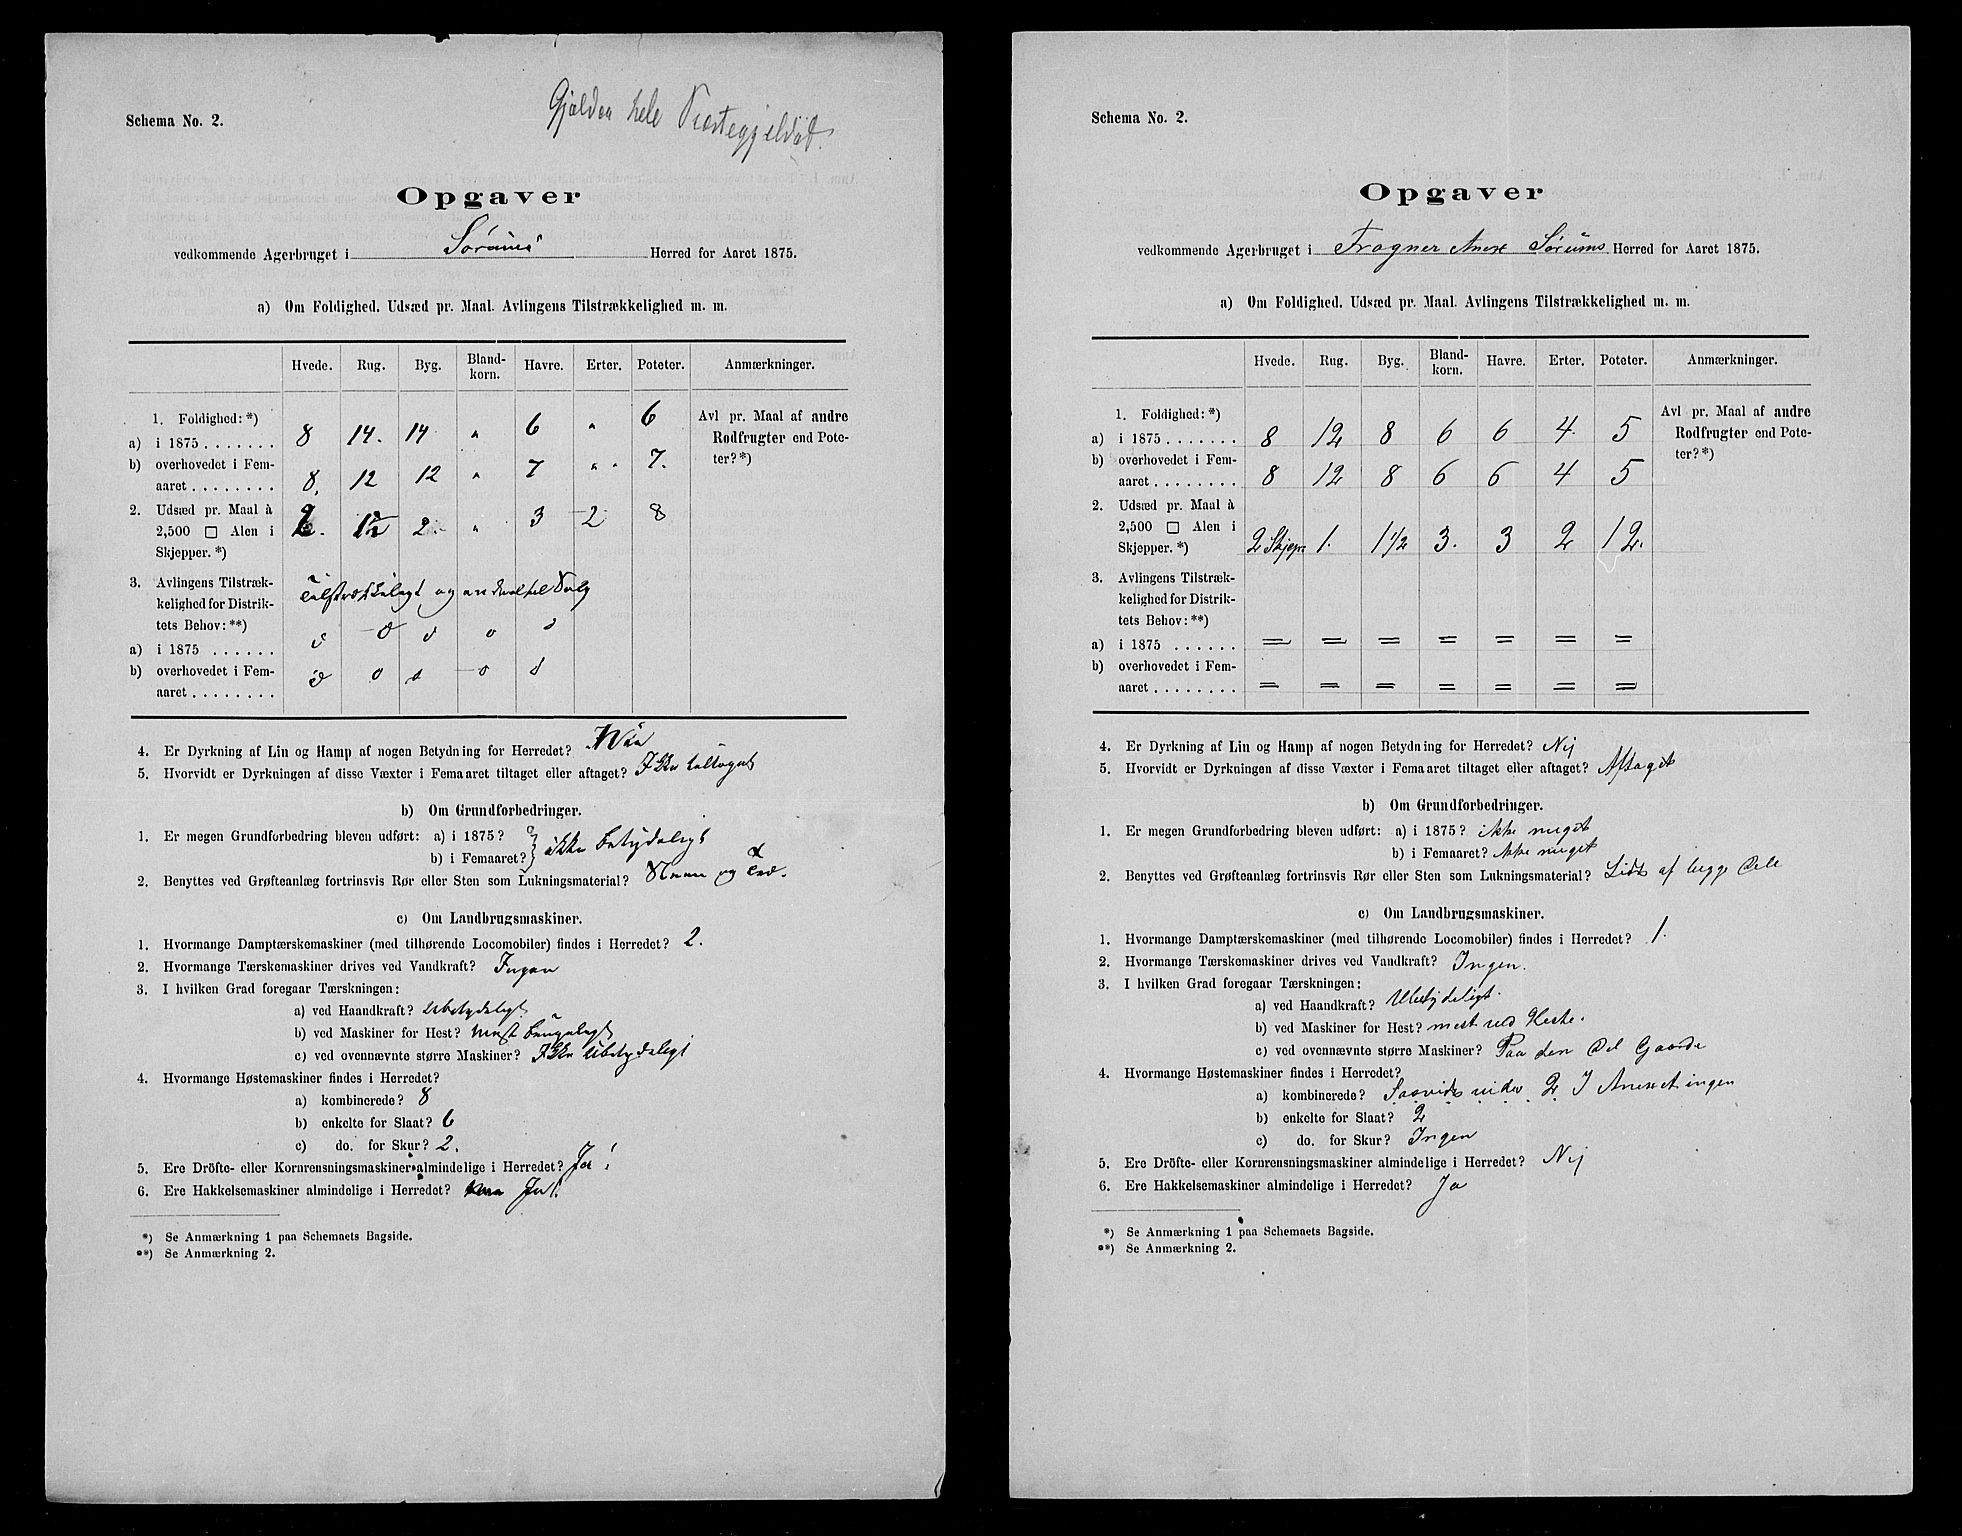 Schema No. 2.
Gjælder hele Præstegjeldet.
Opgaver
vedkommende Agerbruget i Sørums Herred for Aaret 1875.
a) Om Foldighed. Udsæd pr. Maal. Avlingens Tilstrækkelighed m. m.
Hvede. Rug. Byg. Bland-korn. Havre. Erter. Poteter. Anmærkninger.
1. Foldighed: *)
a) i 1875 ....... 8 14. 14 " 6 " 6
b) overhovedet i Fem-
aaret ........ 8. 12 12 " 7 " " 7.
2. Udsæd pr. Maal à
2,500 □ Alen i
Skjepper. *) 1½ 2. " 3 2 8
3. Avlingens Tilstræk-
kelighed for Distrik-
tets Behov: **)
Tilstrækkeligt og endeel til Salg
a) i 1875 ......
b) overhovedet i Fem-
aaret ........
Avl pr. Maal af andre
Rodfrugter end Pote-
ter? *)
4. Er Dyrkning af Lin og Hamp af nogen Betydning for Herredet?
5. Hvorvidt er Dyrkningen af disse Væxter i Femaaret tiltaget eller aftaget? Ikke tiltaget
b) Om Grundforbedringer.
1. Er megen Grundforbedring bleven udført: a) i 1875?
b) i Femaaret? } ikke betydeligt
2. Benyttes ved Grøfteanlæg fortrinsvis Rør eller Sten som Lukningsmaterial? Steen og
c) Om Landbrugsmaskiner.
1. Hvormange Damptærskemaskiner (med tilhørende Locomobiler) findes i Herredet? 2.
2. Hvormange Tærskemaskiner drives ved Vandkraft? Ingen
3. I hvilken Grad foregaar Tærskningen:
a) ved Haandkraft? Ubetydeligt
b) ved Maskiner for Hest? mest
c) ved ovennævnte større Maskiner? Ikke Ubetydeligt
4. Hvormange Høstemaskiner findes i Herredet?
a) kombinerede? 8
b) enkelte for Slaat? 6
c) do. for Skur? 2.
5. Ere Dröfte- eller Kornrensningsmaskiner almindelige i Herredet? Ja!
6. Ere Hakkelsemaskiner almindelige i Herredet? Ja!
*) Se Anmærkning 1 paa Schemaets Bagside.
**) Se Anmærkning 2.
Schema No. 2.
Opgaver
vedkommende Agerbruget i Frogner Anex Sørums Herred for Aaret 1875.
a) Om Foldighed. Udsæd pr. Maal. Avlingens Tilstrækkelighed m. m.
Hvede. Rug. Byg. Bland-korn. Havre. Erter. Poteter. Anmærkninger.
1. Foldighed: *)
a) i 1875 ....... 8 12 8 6 6 4. 5
b) overhovedet i Fem-
aaret ........ 8 12 8 6 6 4 5
2. Udsæd pr. Maal à
2,500 □ Alen i
Skjepper. *) 2 Skjepr 1. 1 1/2 3. 3 2 12.
3. Avlingens Tilstræk-
kelighed for Distrik-
tets Behov: **)
a) i 1875 ...... = = = = = = =
b) overhovedet i Fem-
aaret ........ = = = = = = =
Avl pr. Maal af andre
Rodfrugter end Pote-
ter? *)
4. Er Dyrkning af Lin og Hamp af nogen Betydning for Herredet? Nej
5. Hvorvidt er Dyrkningen af disse Væxter i Femaaret tiltaget eller aftaget? Aftaget
b) Om Grundforbedringer.
1. Er megen Grundforbedring bleven udført: a) i 1875? ikke meget
b) i Femaaret? ikke meget
2. Benyttes ved Grøfteanlæg fortrinsvis Rør eller Sten som Lukningsmaterial? Lidt af begge Dele
c) Om Landbrugsmaskiner.
1. Hvormange Damptærskemaskiner (med tilhørende Locomobiler) findes i Herredet? 1.
2. Hvormange Tærskemaskiner drives ved Vandkraft? Ingen.
3. I hvilken Grad foregaar Tærskningen:
a) ved Haandkraft? Ubetydeligt.
b) ved Maskiner for Hest? mest ved Heste.
c) ved ovennævnte større Maskiner? Paa den Del Gaarde
4. Hvormange Høstemaskiner findes i Herredet?
a) kombinerede? Saavidt vides 2 I Anexet ingen
b) enkelte for Slaat? 2
c) do. for Skur? Ingen
5. Ere Dröfte- eller Kornrensningsmaskiner almindelige i Herredet? Nej
6. Ere Hakkelsemaskiner almindelige i Herredet? Ja
*) Se Anmærkning 1 paa Schemaets Bagside.
**) Se Anmærkning 2.